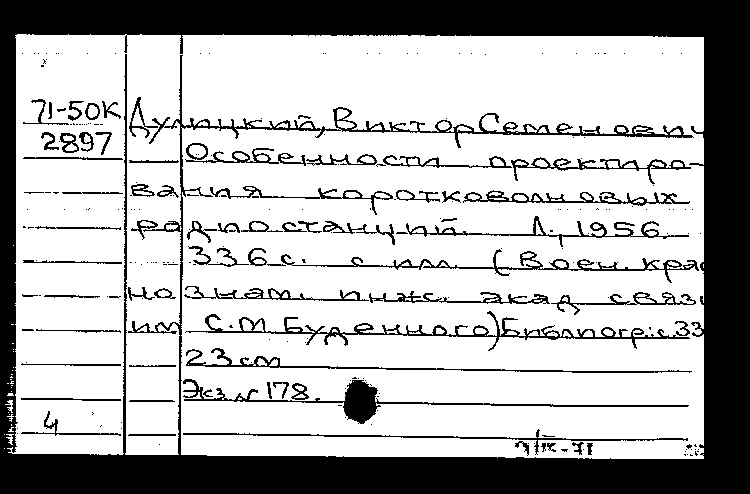 71-50К Дулицкий, Виктор Семенович
2897 Особенности проектиро-
вания коротковолновых
радиостанций. Л., 1956.
336 с. с илл. (Воен. крас
нознам. инж. акад связи
им С.М. Буденного) Библиогр.: с. 33
23 см
Экз. № 178.
4